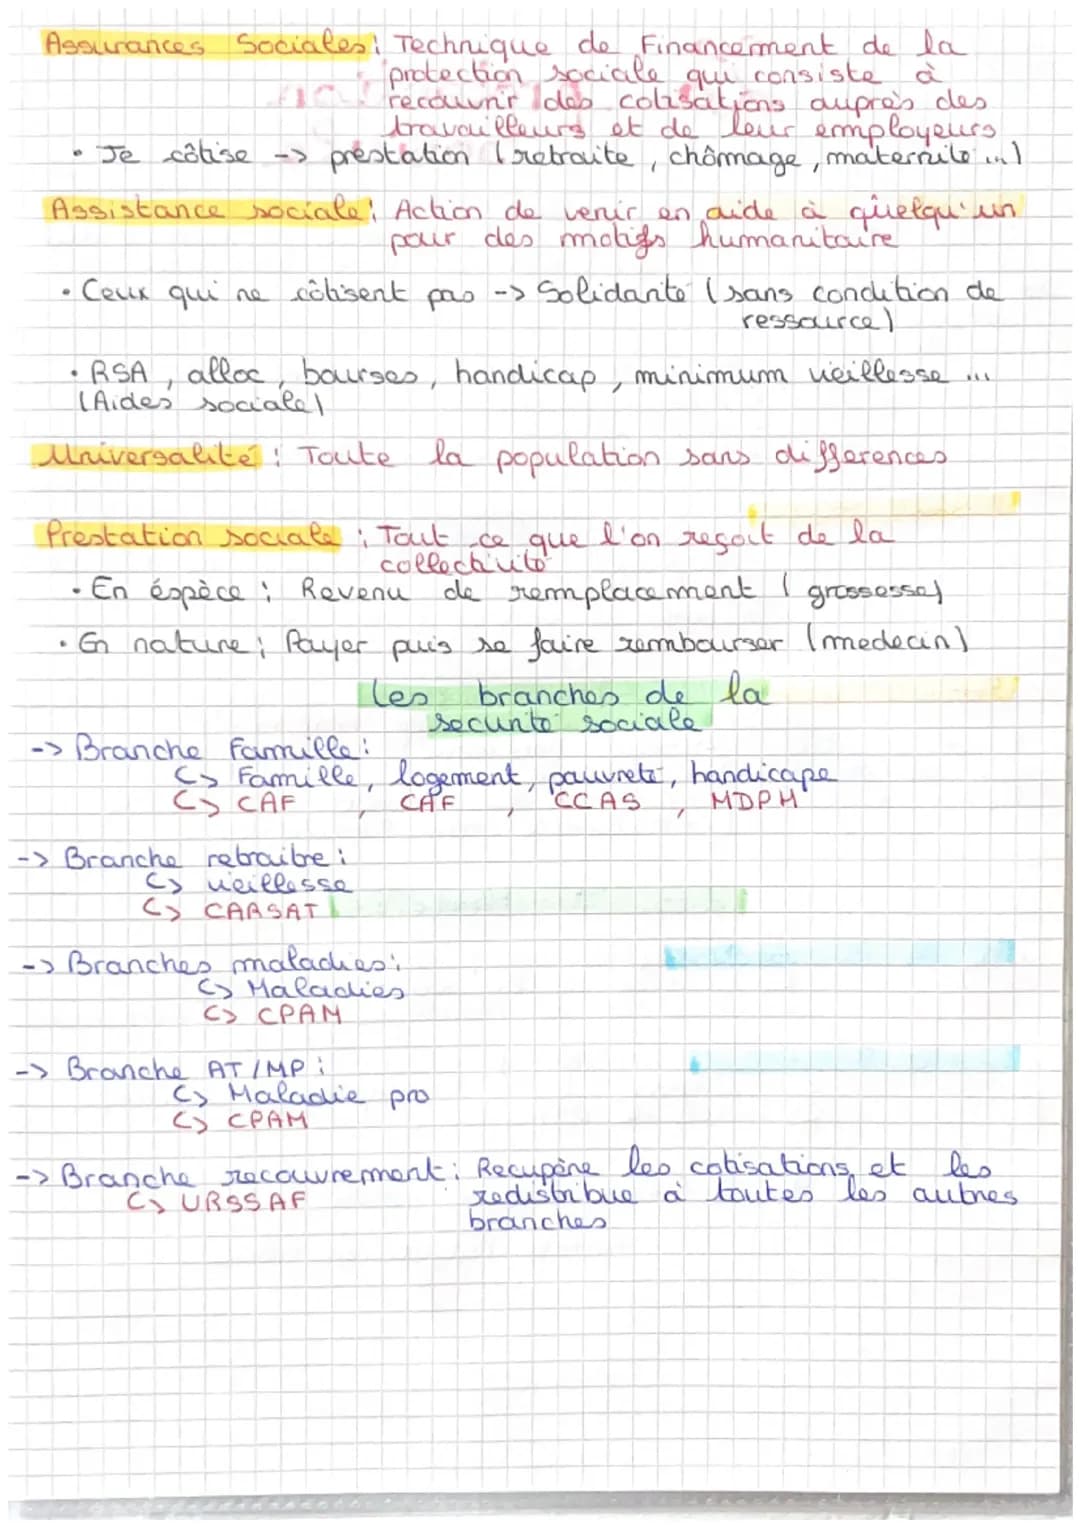 Assurances Sociales : Technique de Financement de la
protection sociale qui consiste à
recouvrir des cotisations auprès des
travailleurs et de leur employeurs
• Je côtise -> prestation (retraite, chômage, maternité ...)
Assistance sociale : Action de venir en aide à quelqu'un
pour des motifs humanitaire
• Ceux qui ne côtisent pas -> Solidarité (sans condition de
ressource)
• RSA, alloc, bourses, handicap, minimum vieillesse ...
(Aides sociale)
Universalité : Toute la population sans differences
Prestation sociale : Tout ce que l'on reçoit de la
collectivité
• En éspèce : Revenu de remplacement (grossesse)
• En nature : Payer puis se faire rembourser (medecin)
les branches de la
securité sociale
-> Branche Famille :
↳ Famille, logement, pauvreté, handicape
↳ CAF, CAF, CCAS, MDPH
-> Branche retraitre :
↳ vieillesse
↳ CARSAT
-> Branches maladies :
↳ Maladies
↳ CPAM
-> Branche AT/MP :
↳ Maladie pro
↳ CPAM
-> Branche recouvrement : Recupère les cotisations et les
↳ URSSAF redistribue à toutes les autres
branches